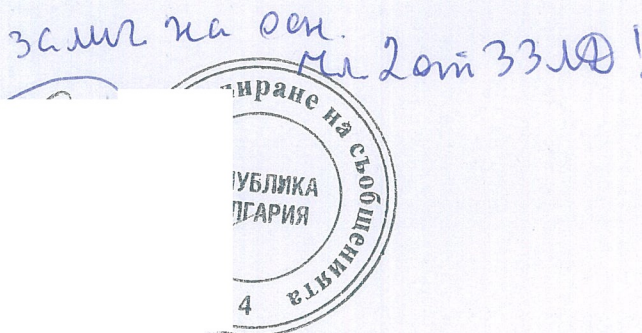 залич на осн.
чл 2 от ЗЗЛД!
иране на съобщенията
УБЛИКА
ЛГАРИЯ
4